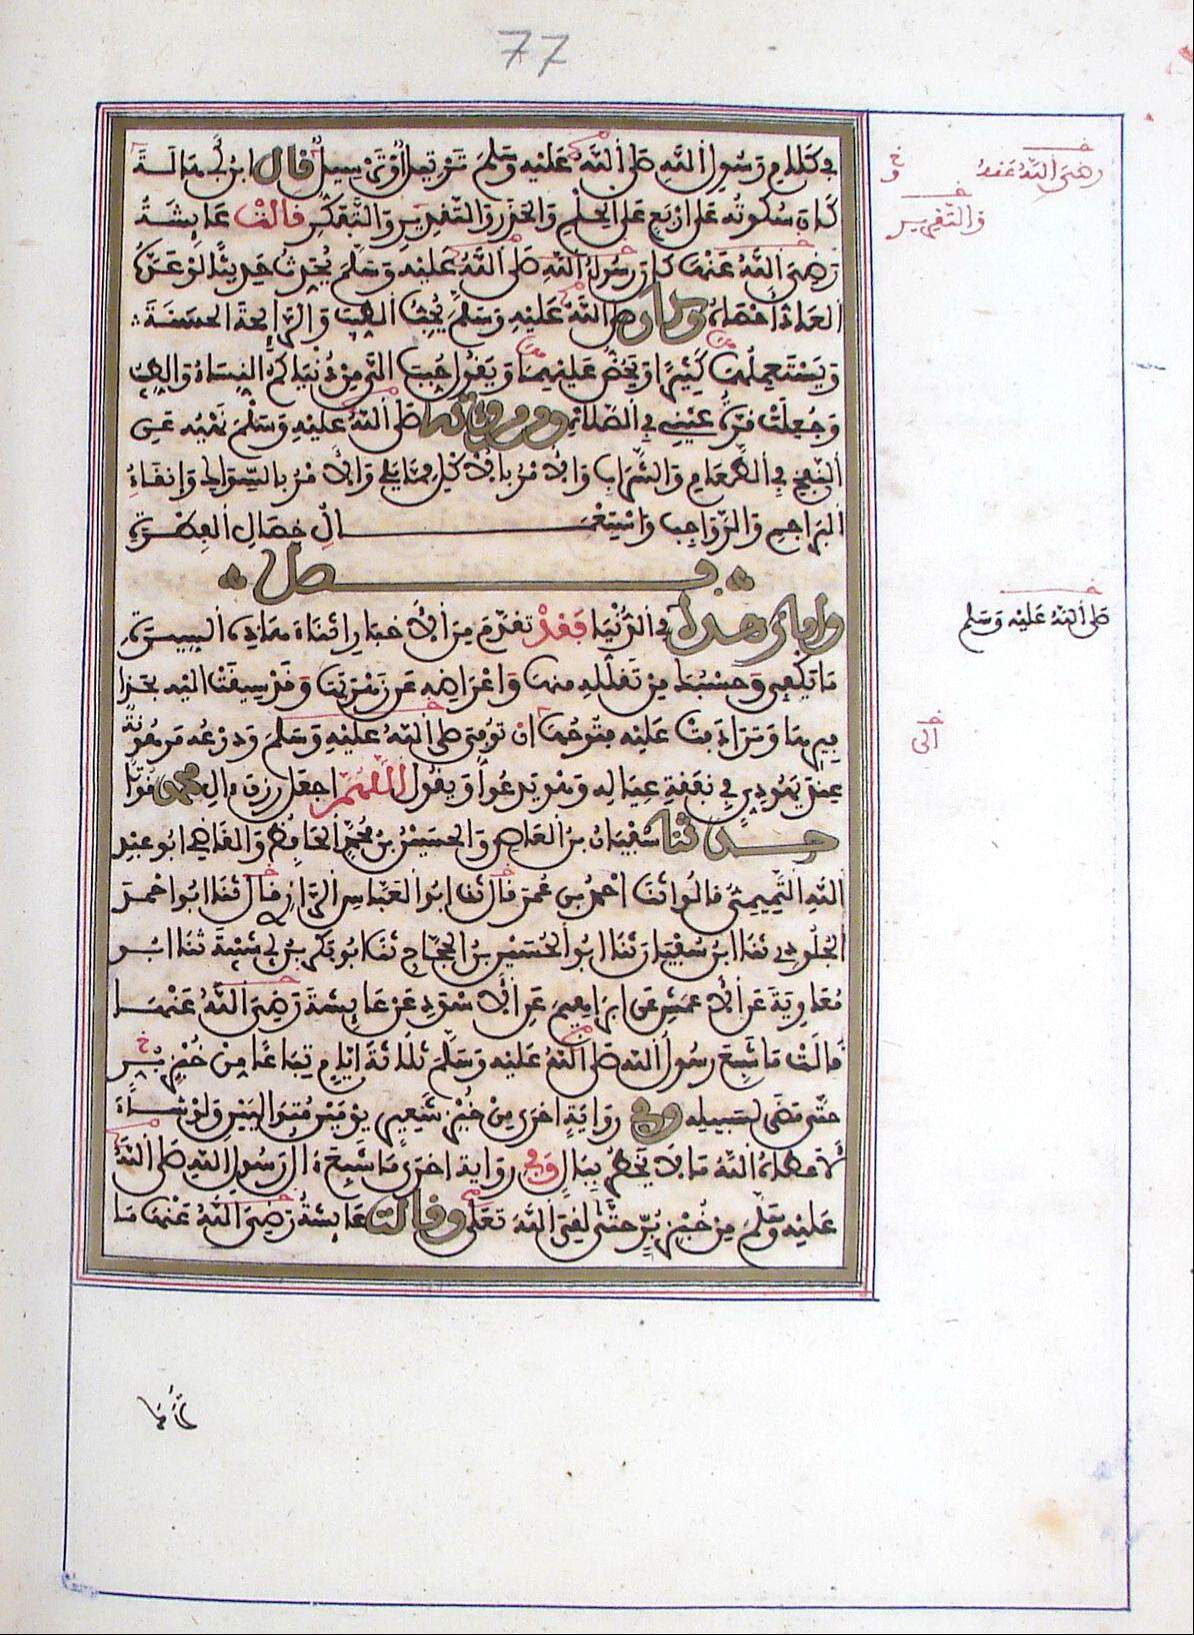 77
في كلام رسول الله صلى الله عليه وسلم ترتيل أو ترسيل قال ابن أبي هالة
كان سكوته على أربع على الحلم والحذر والتقدير والتفكر قالت عائشة
رضي الله عنها كان رسول الله صلى الله عليه وسلم يحدث حديثا لو عده
العاد أحصاه وكان صلى الله عليه وسلم يحب الطيب والرائحة الحسنة
ويستعملهما كثيرا ويحض عليهما ويقول حبب إلي من دنياكم النساء والطيب
وجعلت قرة عيني في الصلاة ومن مروءته صلى الله عليه وسلم نهيه عن
النفخ في الطعام والشراب والأمر بالأكل مما يلي والأمر بالسواك وإنقاء
البراجم والرواجب واستعمال خصال الفطرة
فصل
وأما زهده في الدنيا فقد تقدم من الأخبار أثناء هذه السيرة
ما يكفي وحسبك من تقلله منها وإعراضه عن زهرتها وقد سيقت إليه بحذا
فيرها وترادفت عليه فتوحها أن توفي صلى الله عليه وسلم ودرعه مرهونة
عند يهودي في نفقة عياله وهو يدعو ويقول اللهم اجعل رزق ءال محمد قوتا
حدثنا سفيان بن العاص والحسين بن محمد الحافظ والقاضي أبو عبد
الله التميمي قالوا ثنا أحمد بن عمر قال ثنا أبو العباس الرازي قال ثنا أبو أحمد
الجلودي ثنا ابن سفيان ثنا أبو الحسين بن الحجاج ثنا أبو بكر بن أبي شيبة ثنا أبو
معاوية عن الأعمش عن إبراهيم عن الأسود عن عائشة رضي الله عنها
قالت ما شبع رسول الله صلى الله عليه وسلم ثلاثة أيام تباعا من خبز بر
حتى مضى لسبيله وفي رواية أخرى من خبز شعير يومين متواليين ولو شاء
لأعطاه الله ما لا يخطر ببال وفي رواية أخرى ما شبع ءال رسول الله صلى الله
عليه وسلم من خبز بر حتى لقي الله تعلى وقالت عائشة رضي الله عنها ما
رضي الله عنه
والتقرير
صلى الله عليه وسلم
إلى